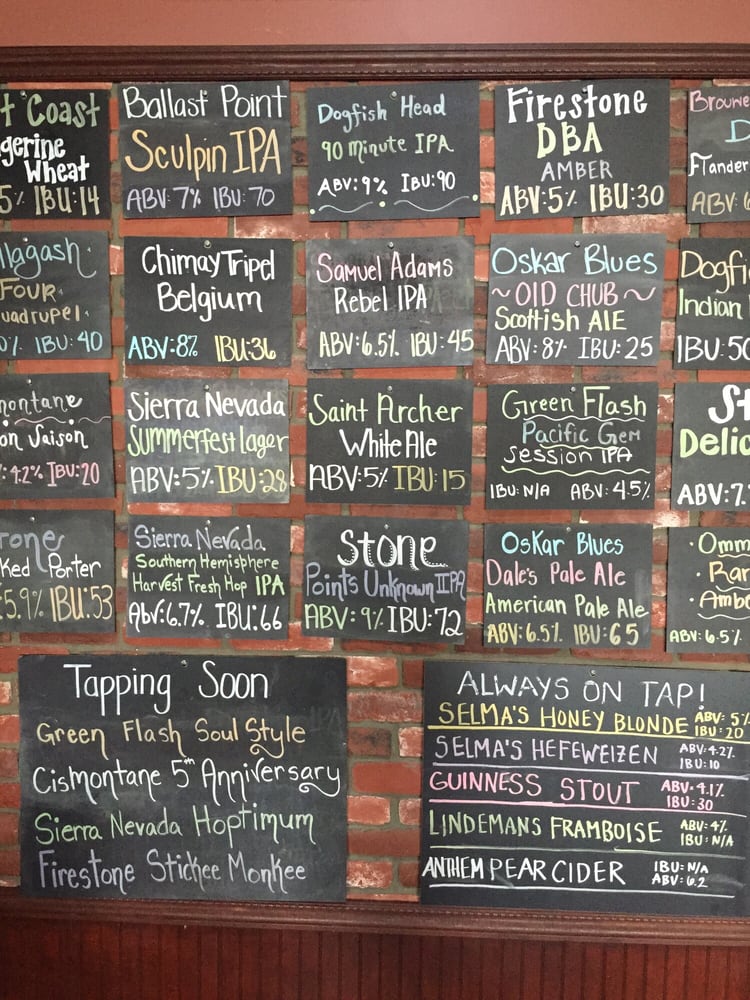 t Coast
gerine
Wheat
5% IBU:14
Ballast Point
Sculpin IPA
ABV: 7% IBU: 70
Dogfish Head
90 Minute IPA
ABV: 9% IBU: 90
Firestone
DBA
AMBER
ABV: 5% IBU: 30
Brouwe
D
Flander
ABV: 6
llagash
FOUR
uadrupel
0% IBU: 40
Chimay Tripel
Belgium
ABV: 8% IBU: 36
Samuel Adams
Rebel IPA
ABV: 6.5% IBU: 45
Oskar Blues
~ OLD CHUB ~
Scottish ALE
ABV: 8% IBU: 25
Dogfi
Indian
IBU: 50
montane
on Saison
: 4.2% IBU: 20
Sierra Nevada
Summerfest Lager
ABV: 5% IBU: 28
Saint Archer
White Ale
ABV: 5% IBU: 15
Green Flash
Pacific Gem
Session IPA
IBU: N/A ABV: 4.5%
St
Delic
ABV: 7.
rone
ked Porter
5.9% IBU: 53
Sierra Nevada
Southern Hemisphere
Harvest Fresh Hop IPA
Abv: 6.7% IBU: 66
Stone
Points Unknown IIPA
ABV: 9% IBU: 72
Oskar Blues
Dale's Pale Ale
American Pale Ale
ABV: 6.5% IBU: 65
· Omm
· Rar
· Ambe
ABV: 6.5%
Tapping Soon
Green Flash Soul Style
Cismontane 5th Anniversary
Sierra Nevada Hoptimum
Firestone Stickee Monkee
ALWAYS ON TAP!
SELMA'S HONEY BLONDE ABV: 5%
IBU: 20
SELMA'S HEFEWEIZEN ABV: 4.2%
IBU: 10
GUINNESS STOUT ABV: 4.1%
IBU: 30
LINDEMANS FRAMBOISE ABV: 4%
IBU: N/A
ANTHEM PEAR CIDER IBU: N/A
ABV: 6.2